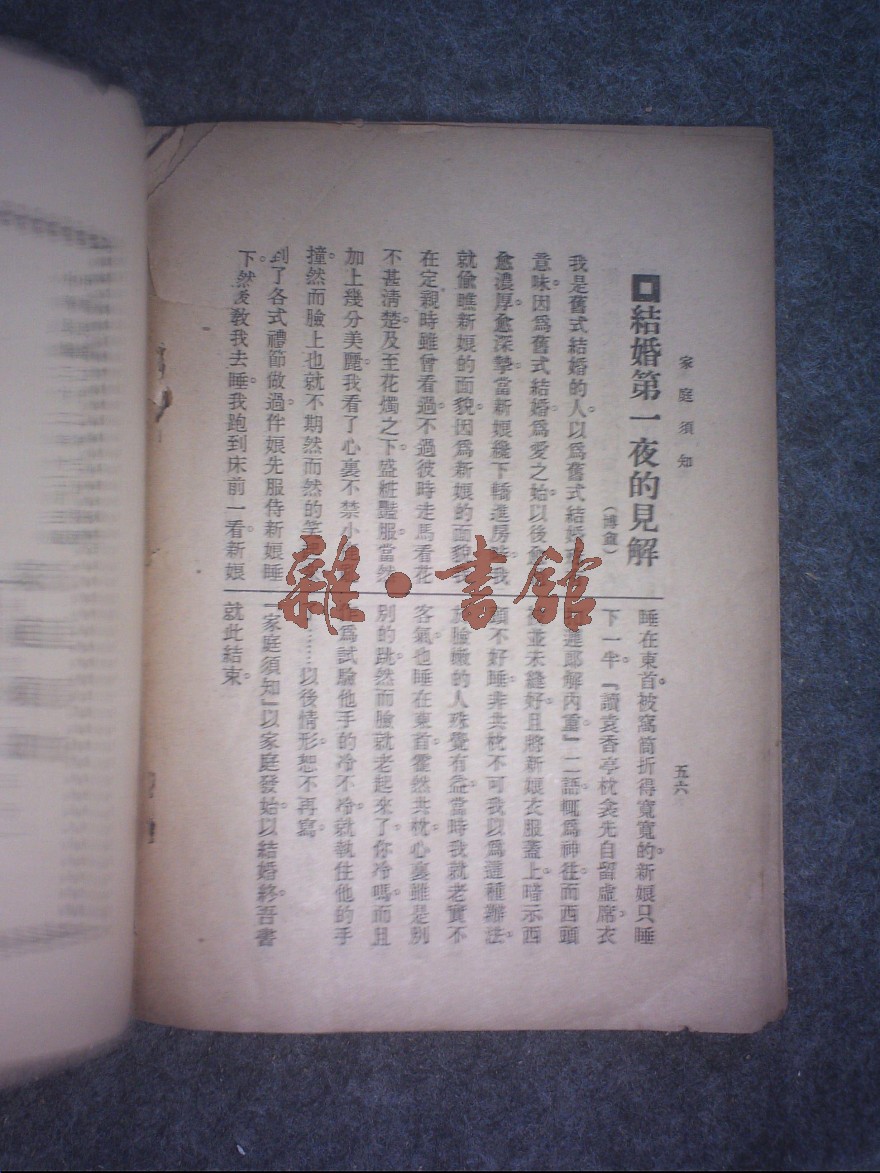 家庭須知
五六
結婚第一夜的見解
(博盦)
我是舊式結婚的人。以爲舊式結婚
意味。因爲舊式結婚。爲愛之始。以後愈
愈濃厚。愈深摯。當新娘纔下轎進房
就偷瞧新娘的面貌。因爲新娘的面貌我
在定親時雖曾看過。不過彼時走馬看花
不甚清楚。及至花燭之下。盛粧豔服。當然
加上幾分美麗。我看了心裏不禁小
撞。然而臉上也就不期然而然的笑
到了各式禮節做過。伴娘先服侍新娘睡
下。然後敎我去睡。我跑到床前一看。新娘
睡在東首。被窩筒折得寬寬的。新娘只睡
下一半。『讀袁香亭枕衾先自留虛席。衣
郎解內重』二語。輒爲神往。而西頭
並未縫好。且將新娘衣服蓋上。暗示西
頭不好睡。非共枕不可。我以爲這種辦法。
臉嫩的人。殊覺有益。當時我就老實不
客氣。也睡在東首。霍然共枕。心裏雖是別
別的跳。然而臉就老起來了。你冷嗎。而且
爲試驗他手的冷不冷。就執住他的手
……以後情形。恕不再寫。
『家庭須知』以家庭發始。以結婚終。吾書
就此結束。
雜·書館